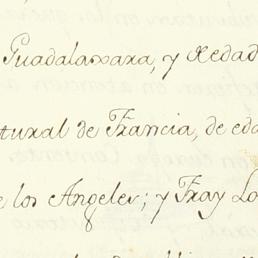 Guadalaxara, y Redad
tural de Francia, de eda
e los Angeles; y Fray Lo